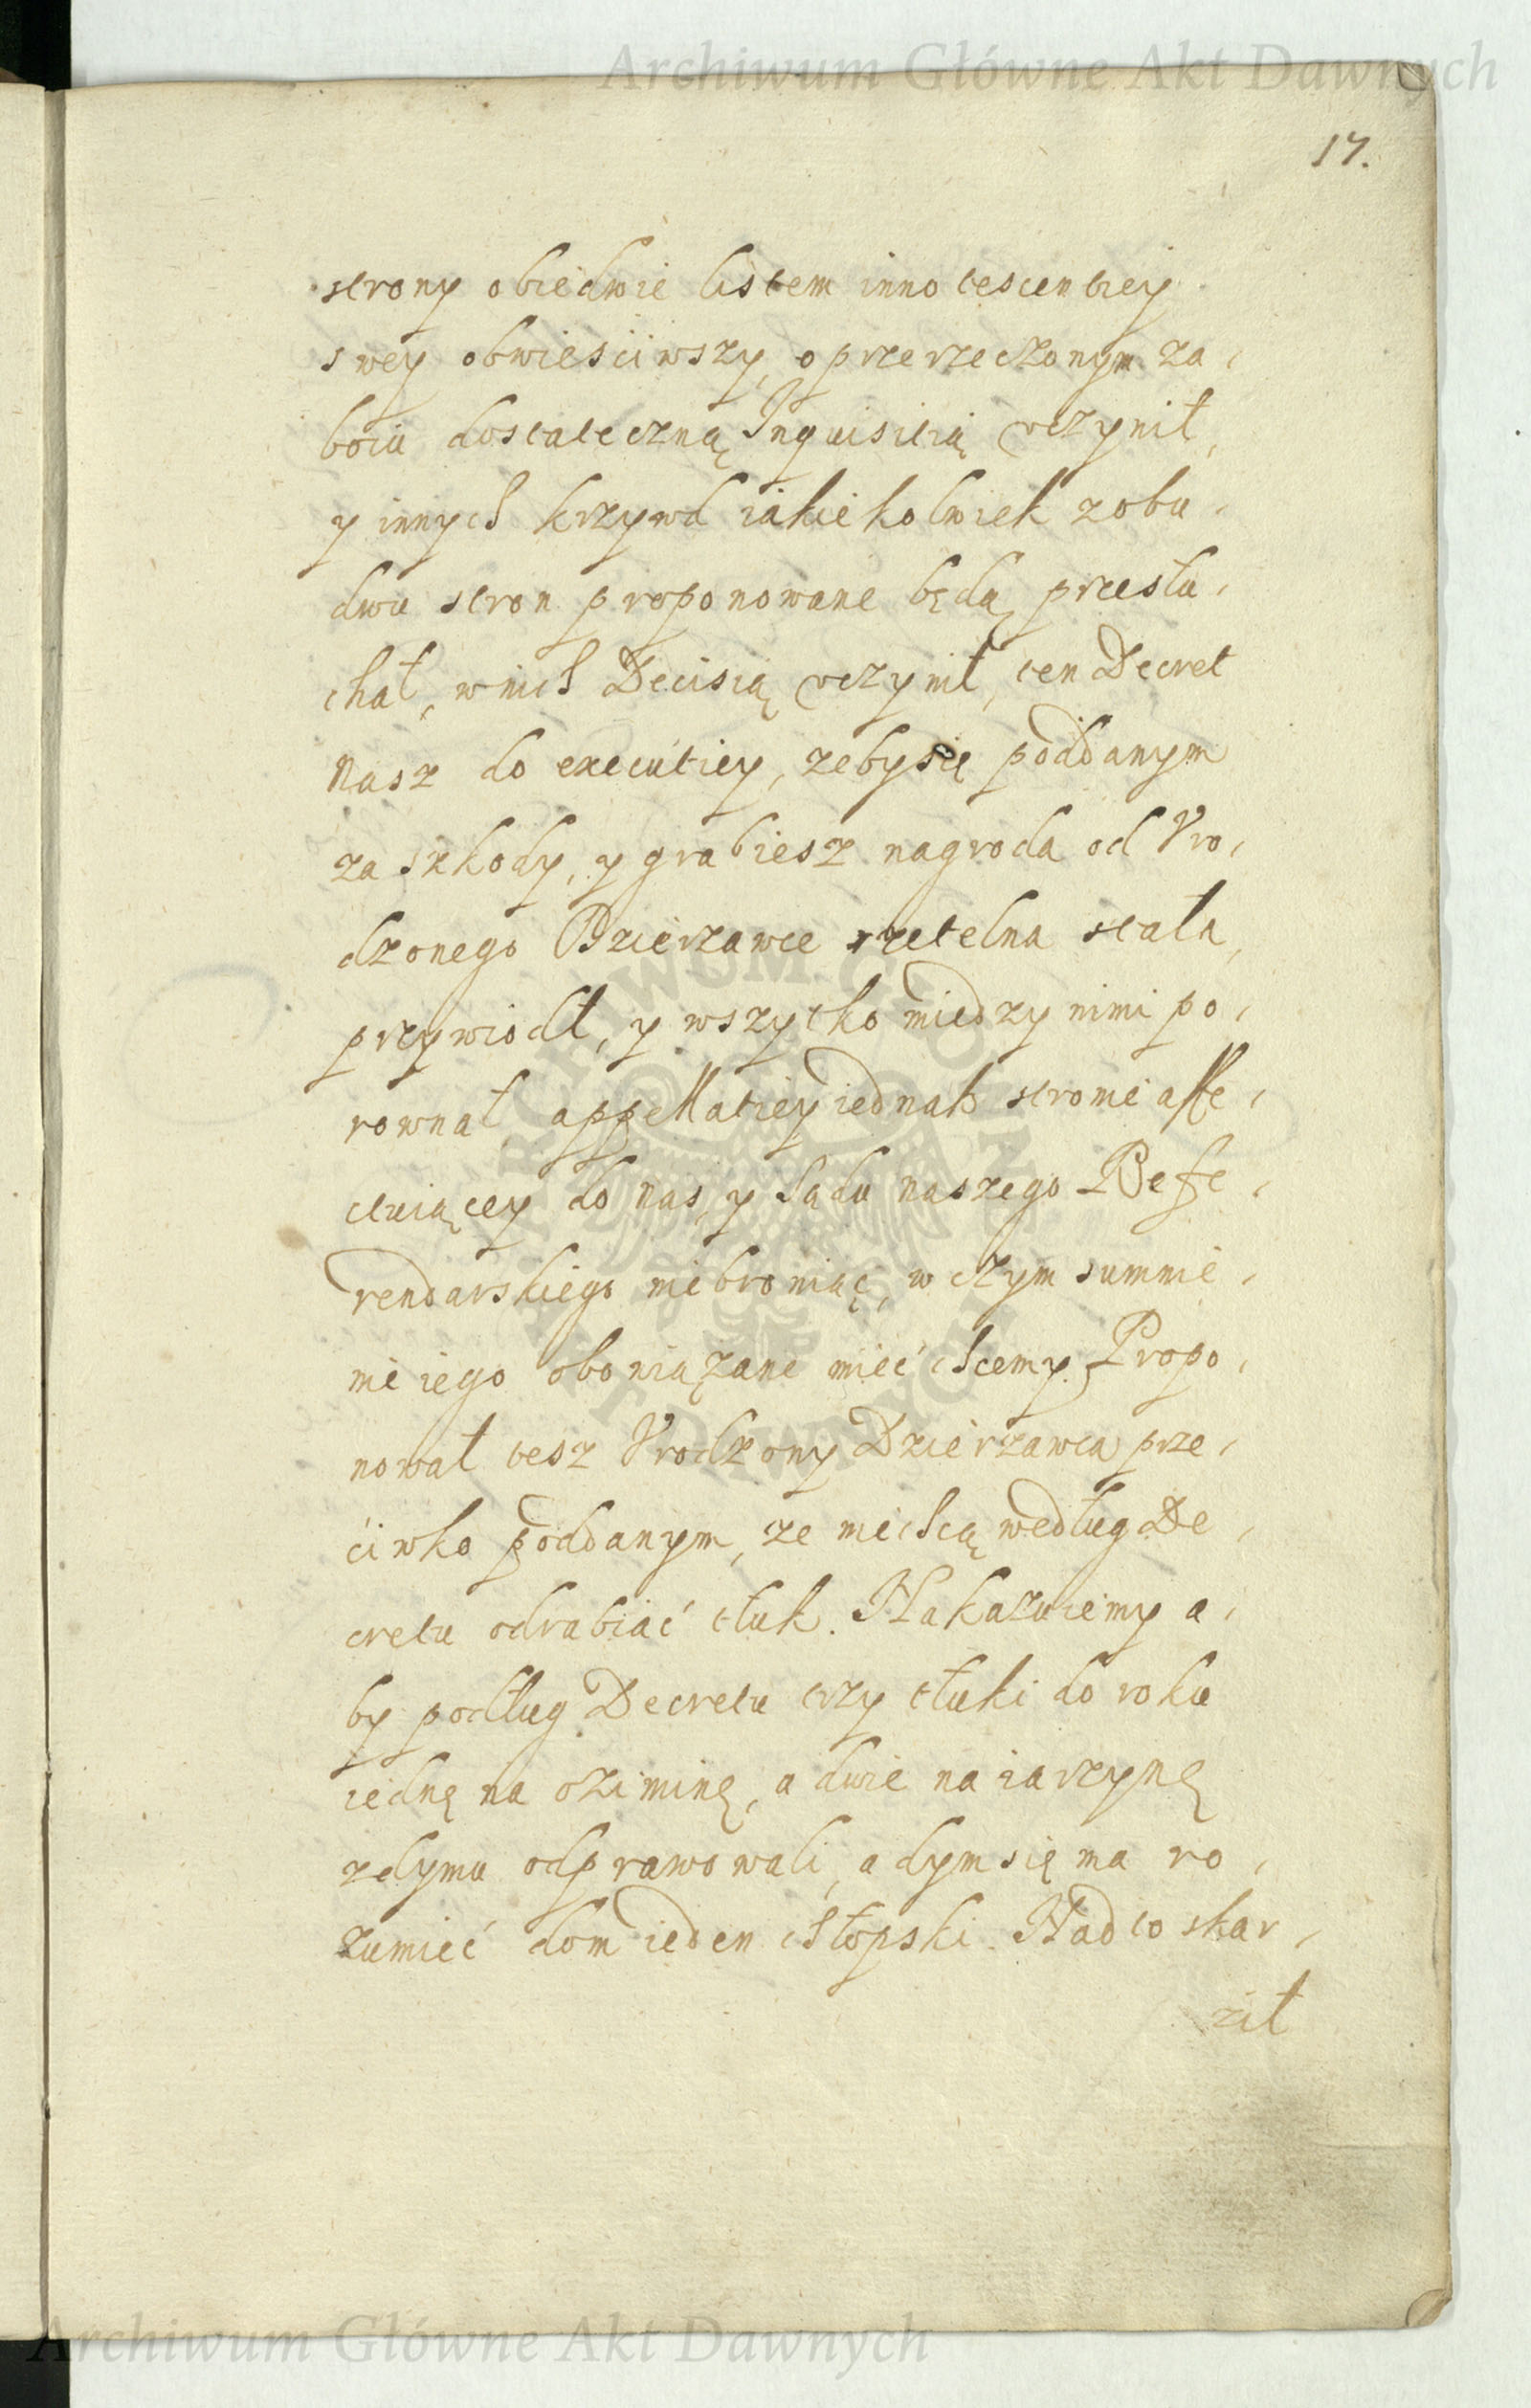 Archiwum Główne Akt Dawnych
17.
strony obiedwie listem innotescentiey
swey obwiesciwszy, o przerzeczonym za,
boiu dostateczną Inquisitią vczynił,
y innych krzywd iakiekolwiek z obu,
dwu stron proponowane będą przesłu,
chał, w nich Decisią vczynił, ten Decret
nasz do executiey, zeby się poddanym
za szkody, y grabiesz nagroda od Vro,
dzonego Dzierzawce rzetelna stała,
przywiodł, y wszytko miedzy nimi po,
rownał, appellatiey iednak stronie affe,
ctuiącey do nas, y Sądu naszego Refe,
rendarskiego niebroniąc, w czym summie,
nie iego obowiązane mieć chcemy. Propo,
nował tesz Vrodzony Dzierzawca prze,
ciwko poddanym, ze niechcą według De,
cretu odrabiać tłuk. Nakazuiemy a,
by podług Decretu trzy tłuki do roku
iednę na oziminę, a dwie na iarzynę
z dymu odprawowali, a dym się ma ro,
zumieć dom ieden chłopski. Nadto skar,
ził
ARCHIWUM GŁÓWNE AKT DAWNYCH
Archiwum Główne Akt Dawnych